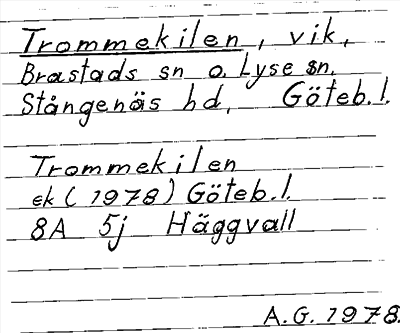 Trommekilen, vik,
Brastads sn o. Lyse sn,
Stångenäs hd, Göteb. l.
Trommekilen
ek (1978) Göteb. l.
8A 5j Häggvall
A.G. 1978.